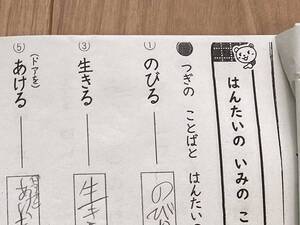 はんたいの いみの こ
● つぎの ことばと はんたいの
① のびる
のび
③ 生きる
生き
⑤ (ドアを)あける